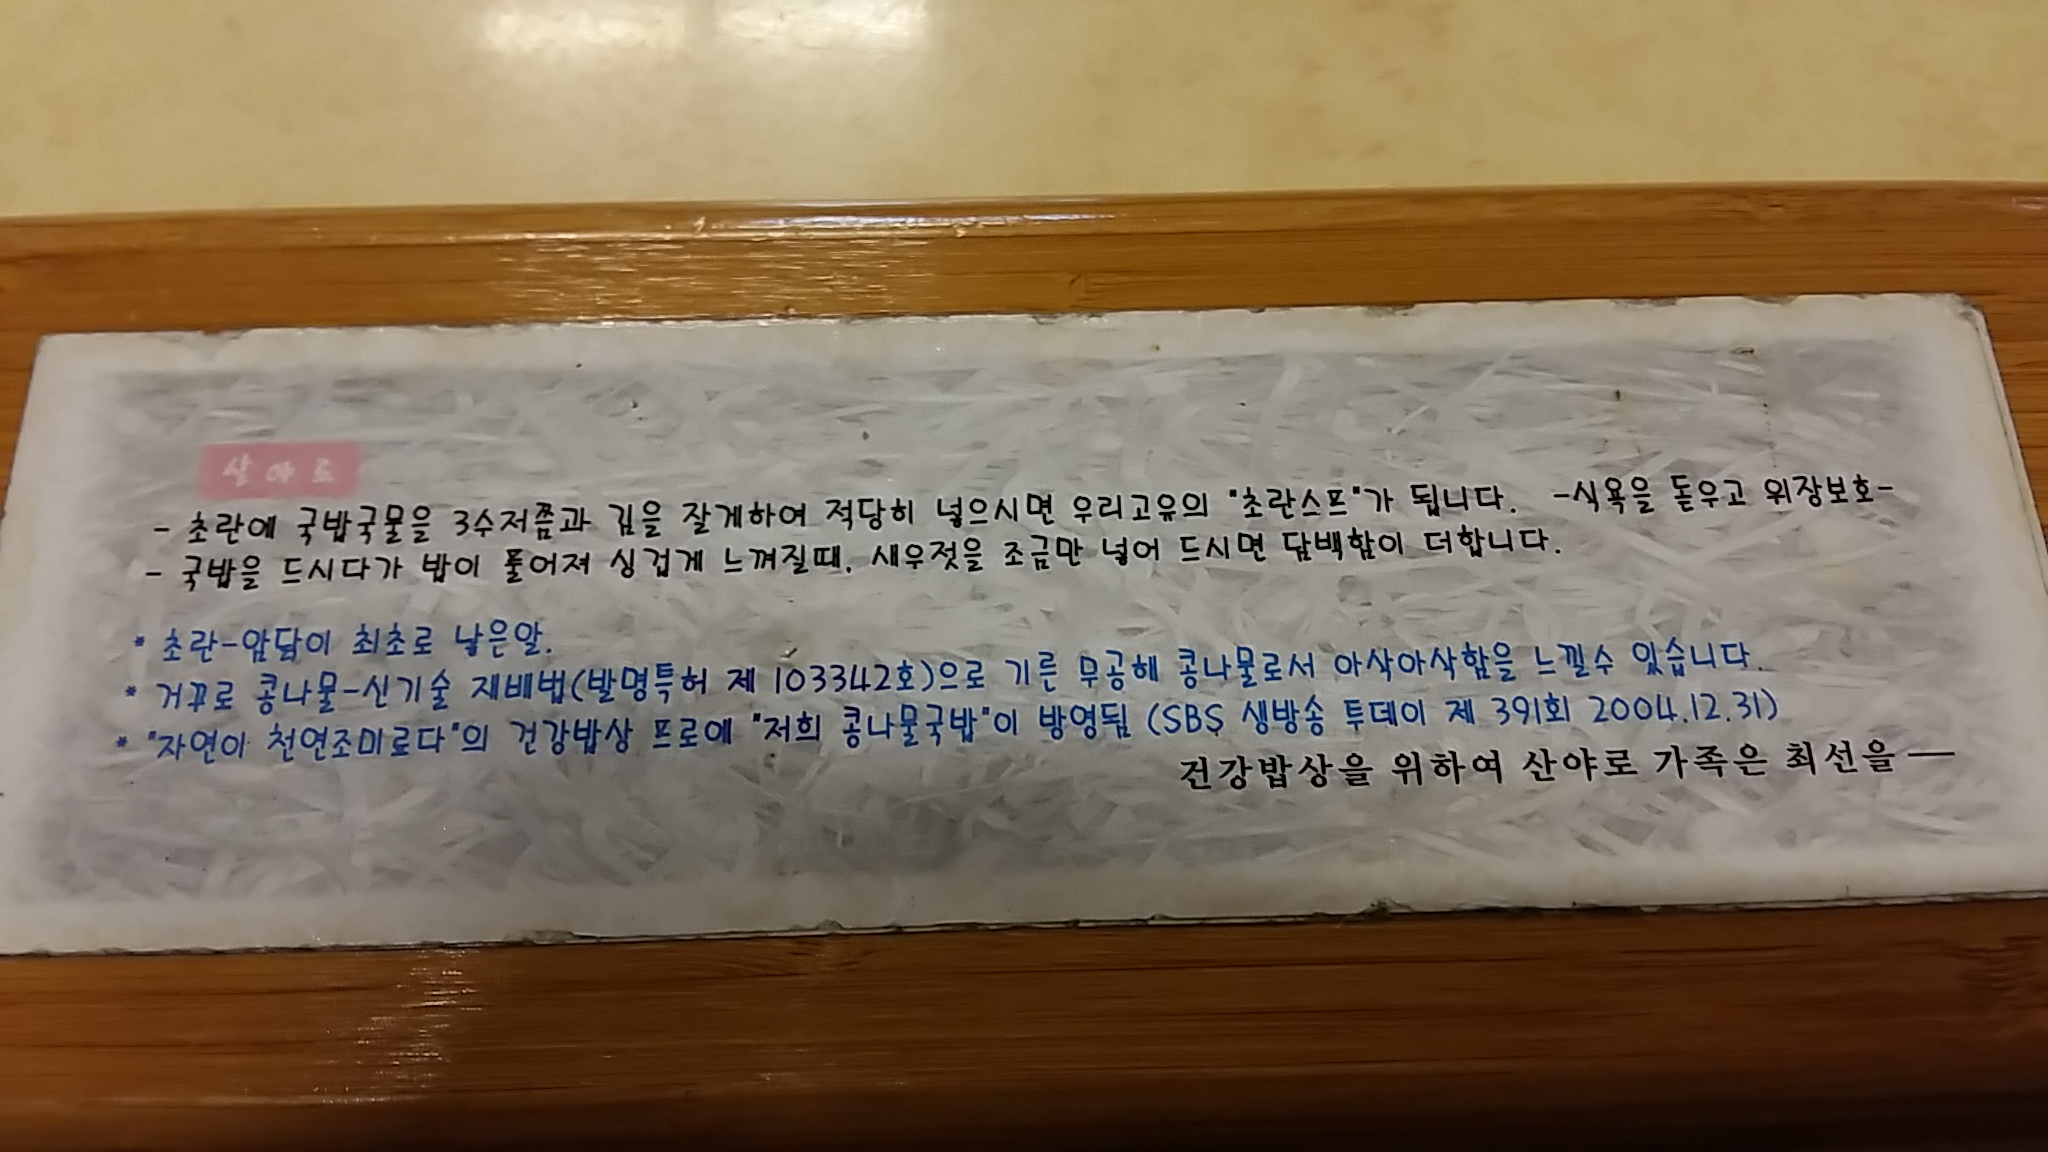 산야로
- 초란에 국밥국물을 3수저쯤과 김을 잘게하여 적당히 넣으시면 우리고유의 "초란스프"가 됩니다. -식욕을 돋우고 위장보호-
- 국밥을 드시다가 밥이 풀어져 싱겁게 느껴질때, 새우젓을 조금만 넣어 드시면 담백함이 더합니다.
* 초란-암닭이 최초로 낳은알.
* 거꾸로 콩나물-신기술 재배법(발명특허 제 103342호)으로 기른 무공해 콩나물로서 아삭아삭함을 느낄수 있습니다.
* "자연이 천연조미료다"의 건강밥상 프로에 "저희 콩나물국밥"이 방영됨 (SBS 생방송 투데이 제 391회 2004.12.31)
건강밥상을 위하여 산야로 가족은 최선을 —